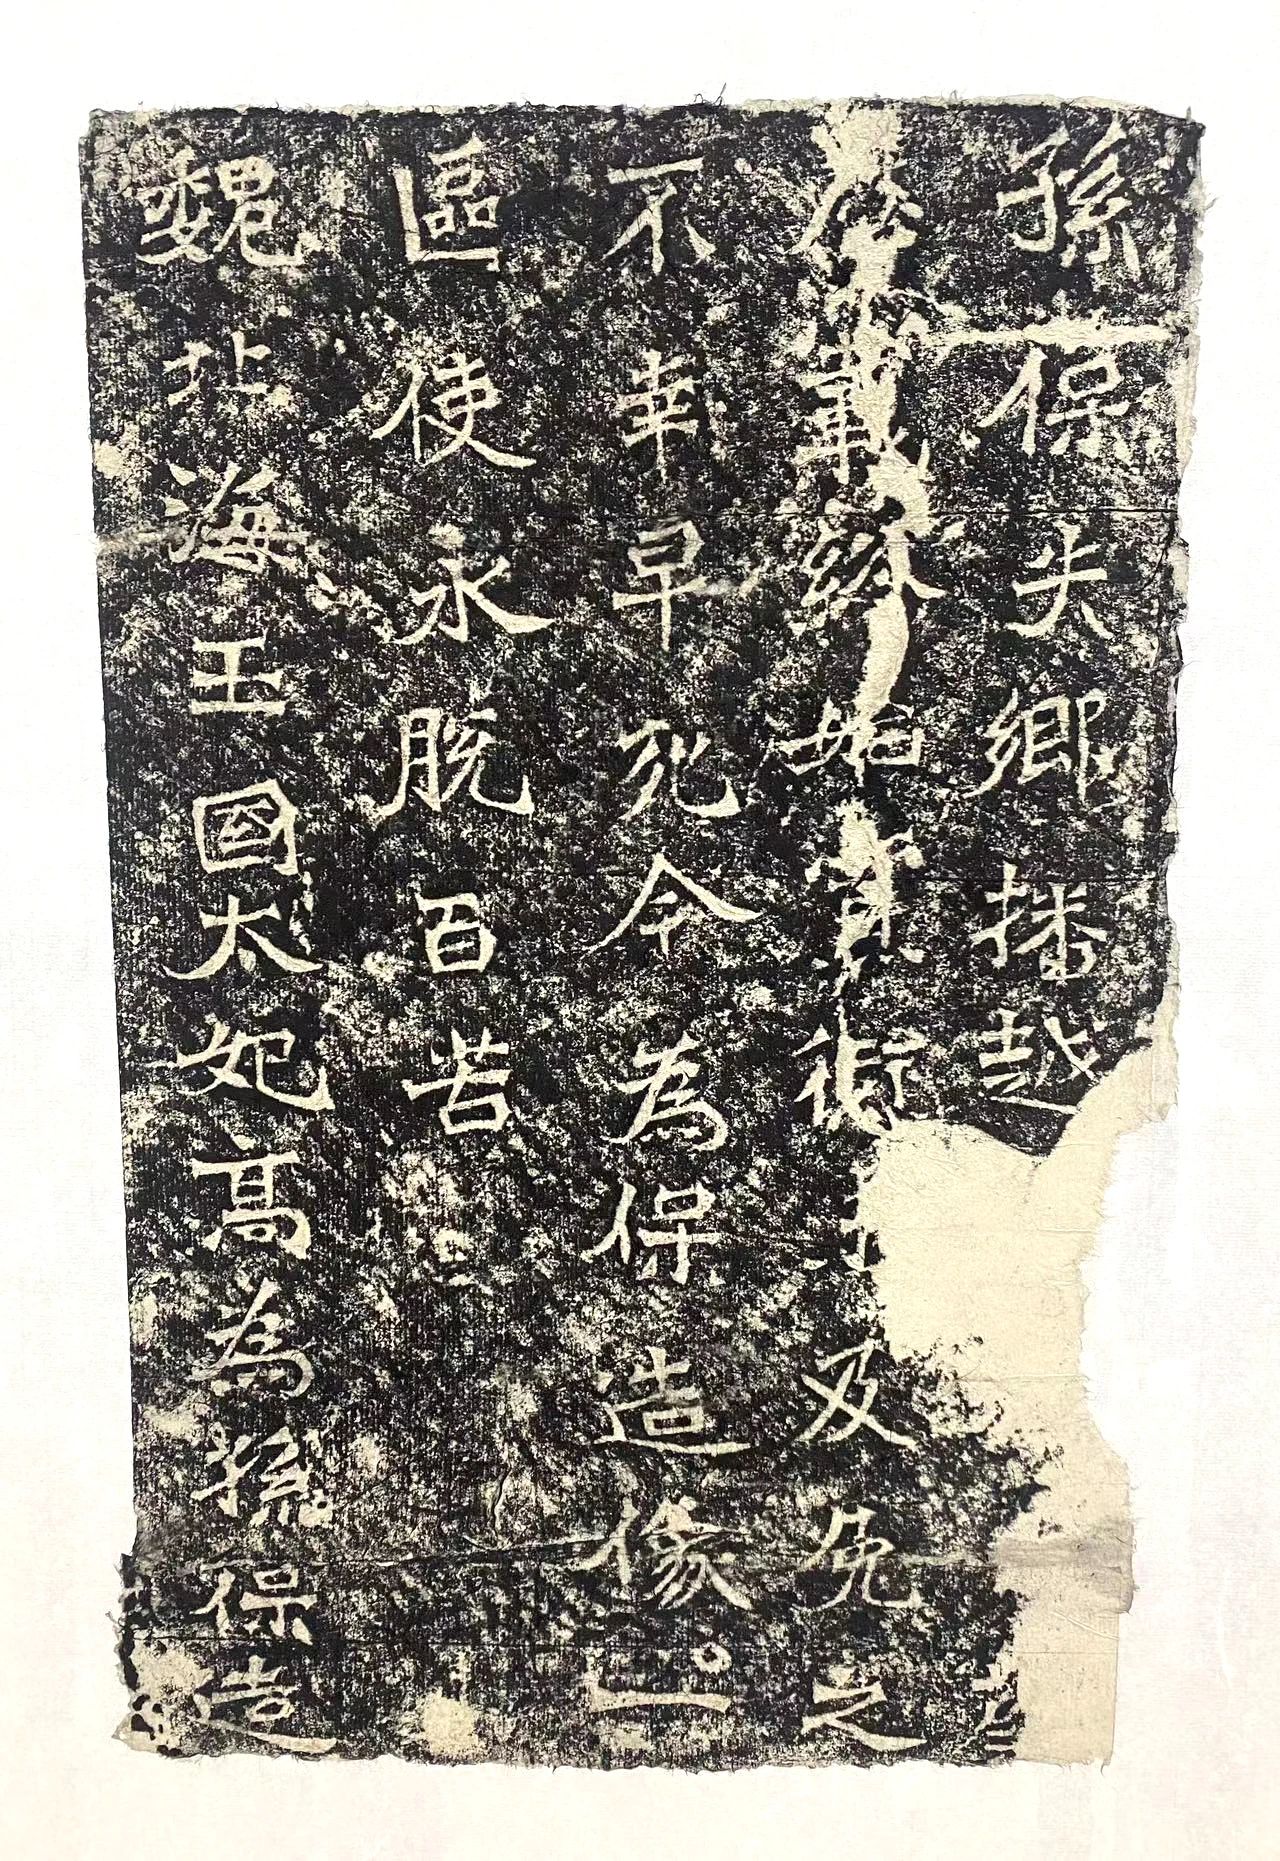 孫保失鄉播越
載終始衛及免之
不幸早死今為保造像一
區使永脫百苦
魏北海王國太妃高為孫保造